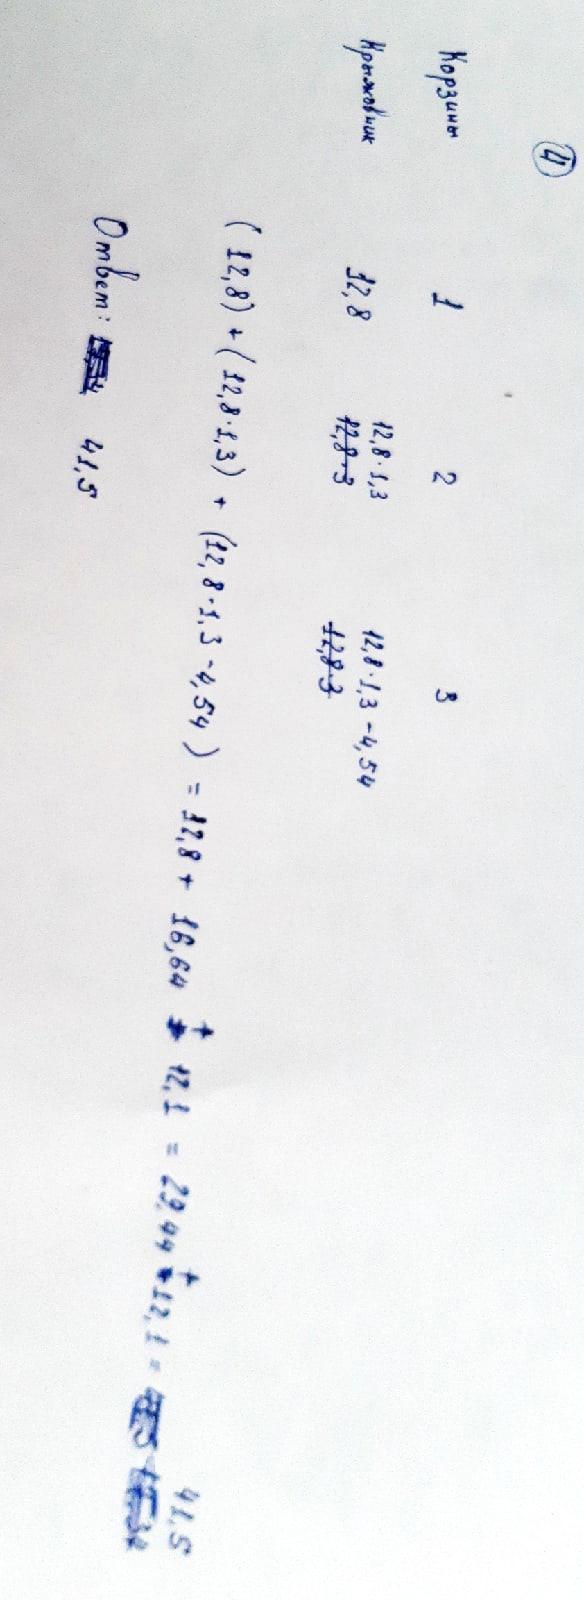 ④
Корзины 1 2 3
Крыжовник 12,8 12,8·1,3 12,8·1,3-4,54
12,8·3 12,8-3
(12,8)+(12,8·1,3)+(12,8·1,3-4,54)=12,8+16,64+12,1=29,44+12,1=41,5
Ответ: 41,5